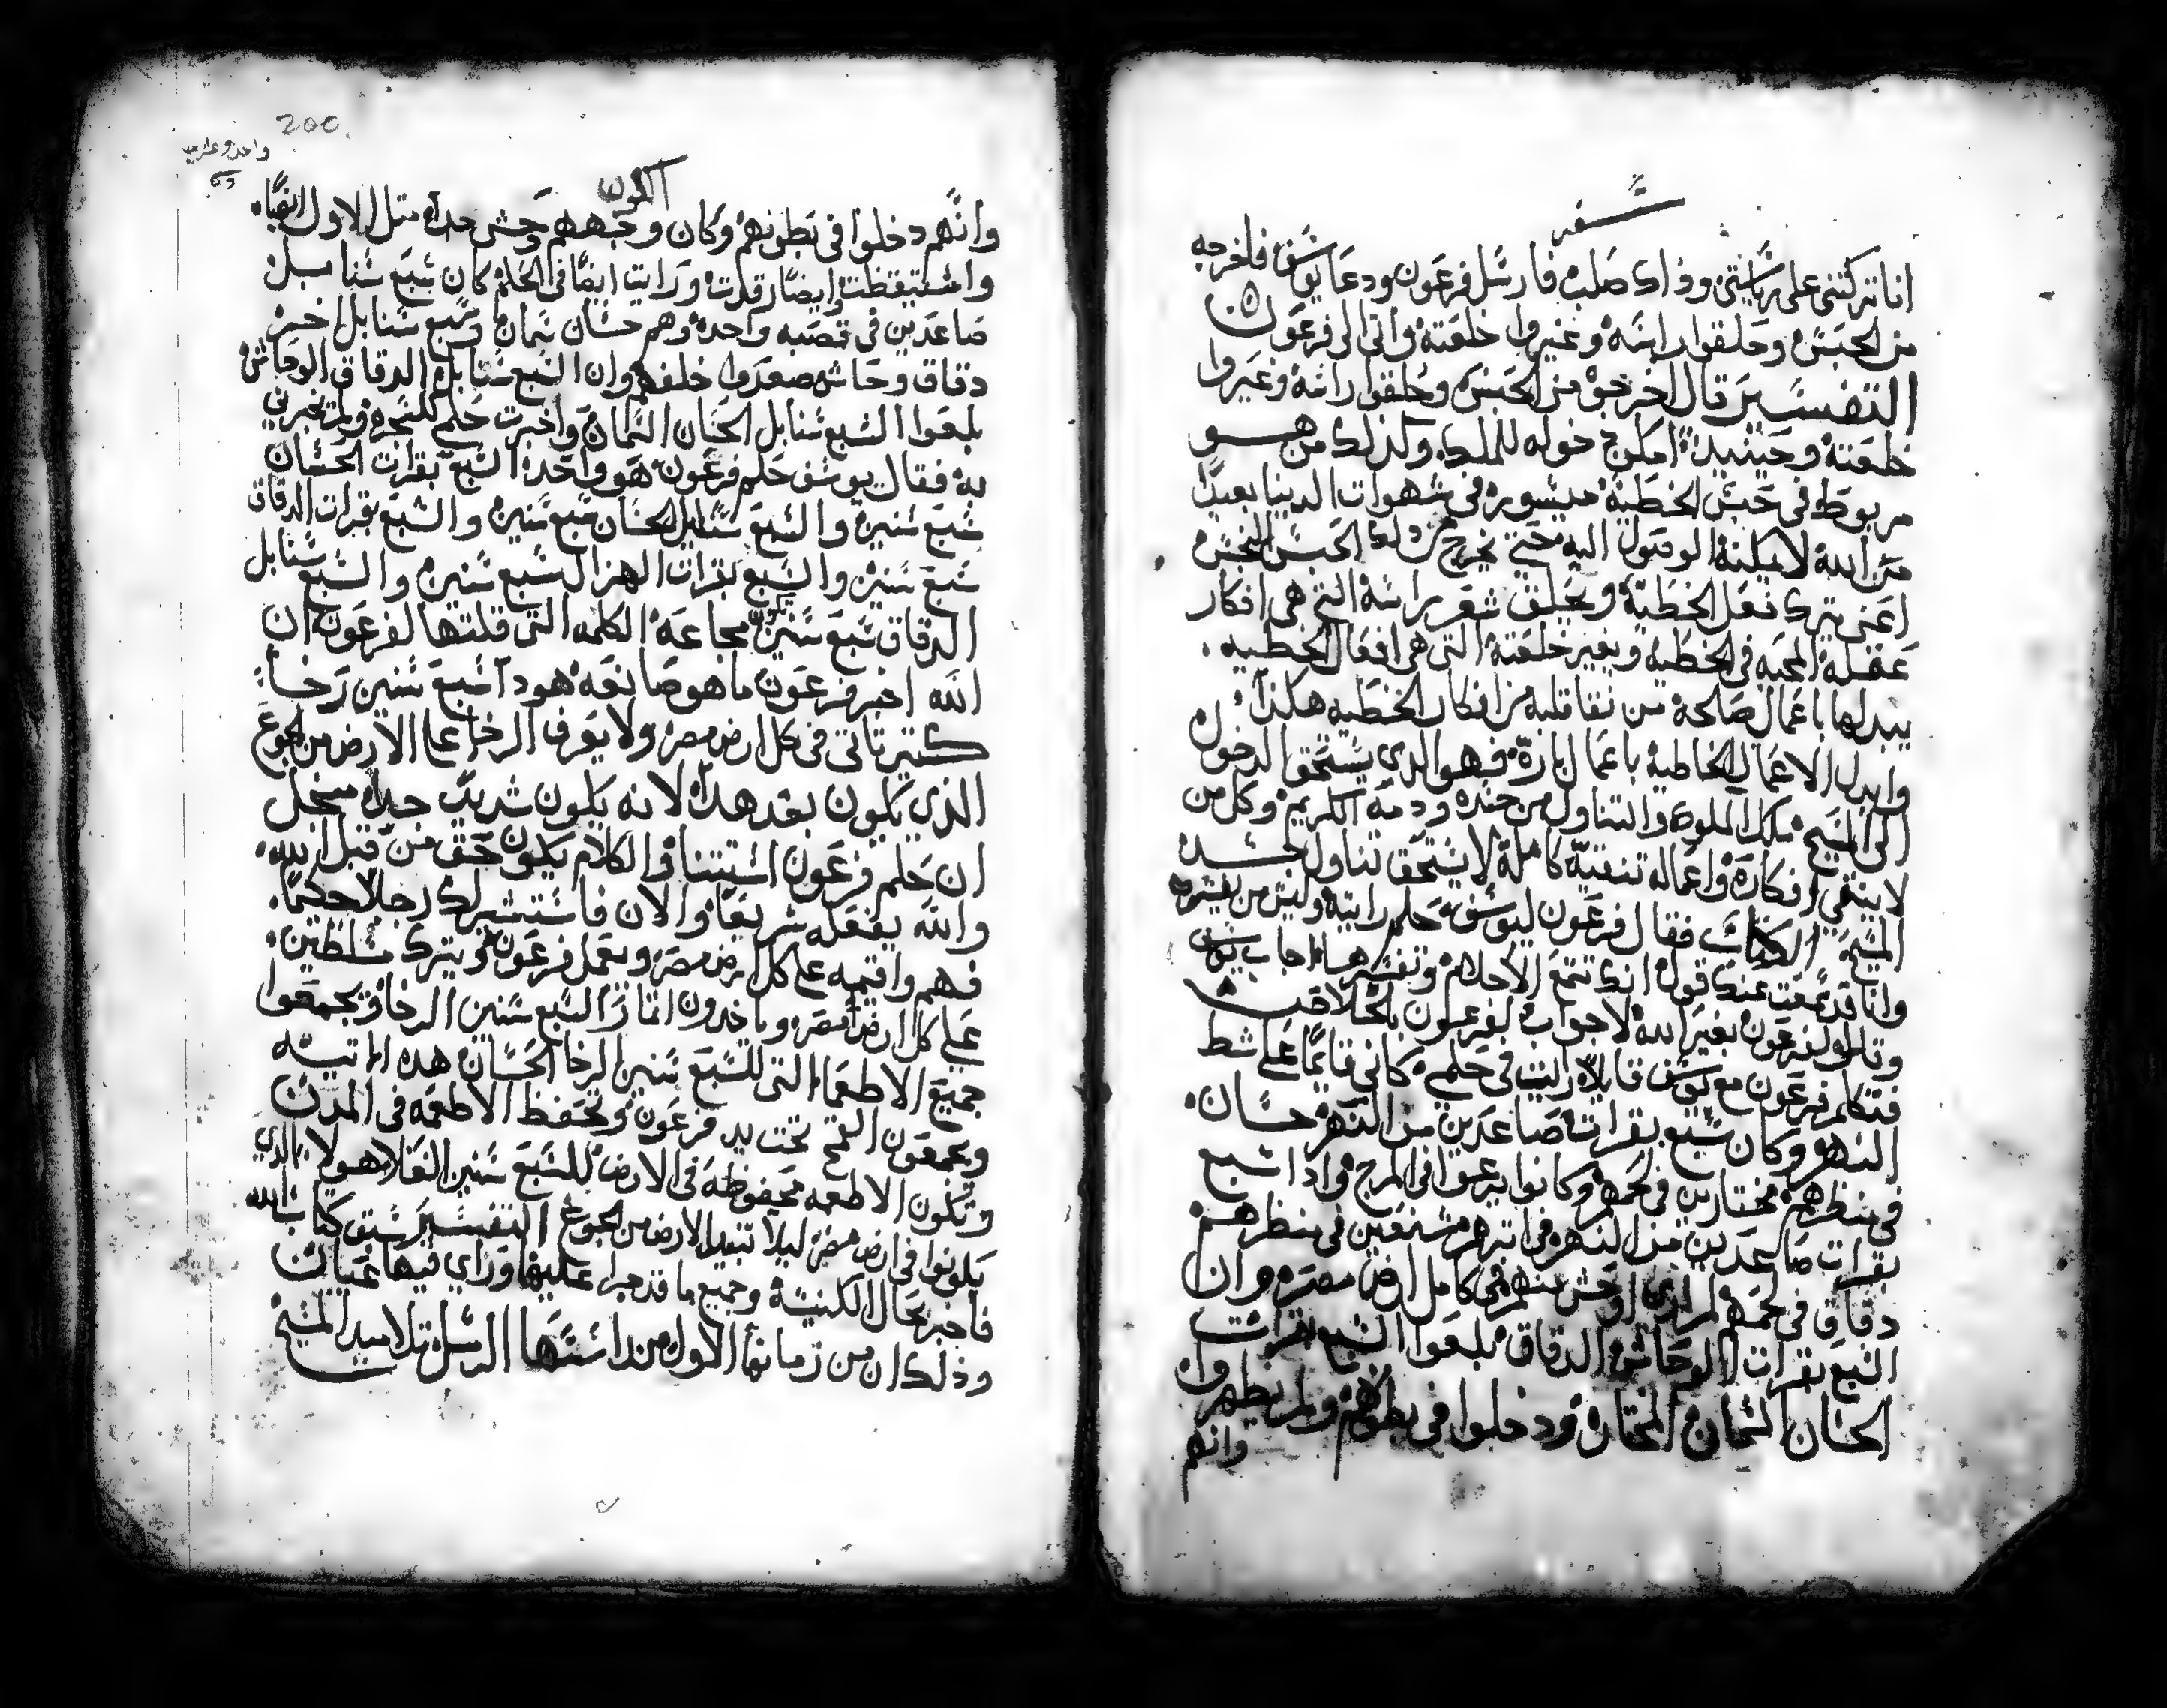 سفر
انا تركتني على رياستي وذاك صلب فارسل فرعون ودعا يوسف فاخرجه
من الحبس وحلقوا راسه وغيروا خلعته واتى الى فرعون
التفسير قال اخرجوه من الحبس وحلقوا راسه وغيروا
خلعته وحينيد امكن دخوله للملك وكذلك من هو
مربوط في حبس الخطية ميسوره في شهوات الدنيا بعيد
من الله لا يمكنه الوصول اليه حتى يخرج من دلك الحبس النجس
اعني يترك فعل الخطية ويحلق شعر راسه التي هي افكار
عقله المحبه في الخطية ويغير خلعته التي هي افعال الخطيه
يبدلها باعمال صالحة من نقا قلبه من افكار الخطيه هكذا
وابدل الاعمال الخاطية باعمال بارة فهو الدي يستحق الدخول
الى المسيح ملك الملوك والتناول من جسده ودمه الكريم وكل من
لا ينقي افكاره واعماله تنقية كاملة لا يستحق تناول جسد
المسيح الكتاب فقال فرعون ليوسف حلم رايته وليس من يفسره
وانا قد سمعت عنك قول انك تسمع الاحلام وتفسرها اجاب يوسف
وقال لفرعون بغير الله لا جواب لفرعون بالخلاص
فتكلم فرعون مع يوسف قايلا رايت في حلمي كاني قايما على شط
النهر وكان سبع بقرات صاعدين من النهر حسان
في منظرهم مختارين في لحمهم وكانوا يرعوا في المرج واذا سبع
بقرات صاعدين من النهر في اثرهم في منظرهم
دقاق في لحمهم لم ارى اوحش منهم في كامل ارض مصر وان
السبع بقرات الوحاش الدقاق بلعوا السبع بقرات
الحسان السمان المختاره ودخلوا في بطونهم ولم يظهروا
وانهم
200
واحد وعشرين
الكون
وانهم دخلوا في بطونهم وكان وجههم وحش جدا متل الاول ايضا
واستيقظت وايضا رقدت ورايت ايضا في الحلم كان سبع سنابل
صاعدين في قصبه واحده وهم حسان سمان وسبع سنابل اخر
دقاق وحاش صعدوا خلفهم وان السبع سنابل الدقاق الوحاش
بلعوا السبع سنابل الحسان السمان واخبرت حلمي للسحره ولم تخبرني
به فقال يوسف حلم فرعون هو واحد السبع بقرات الحسان
سبع سنين والسبع سنابل الحسان سبع سنين والسبع بقرات الدقاق
سبع سنين والسبع بقرات الهزال سبع سنين والسبع سنابل
الدقاق سبع سنين مجاعه الكلمه التي قلتها لفرعون ان
الله اخبر فرعون ما هو صانعه هودا سبع سنين رخا
كتير تاتي في كل ارض مصر ولا يعرف الرخا على الارض من الجوع
الذي يكون بعد هدا لانه يكون شديد جدا من اجل
ان حلم فرعون استتنا والكلام يكون حق من قبل الله
والله يفعله سريعا والان فاستشير لك رجلا حكيما
فهم واقيمه على كل ارض مصر ويعمل فرعون ويترك مسلطين
على كل ارض مصر وياخدون اتمار السبع سنين الرخا ويجمعوا
جميع الاطعما التي للسبع سنين الرخا الحسان هده الاتيه
ويجمعون القمح تحت يد فرعون وتحفظ الاطعمه في المدن
وتكون الاطعمه محفوظه في الارض للسبع سنين الغلا هولا الدي
يكونوا في ارض مصر ليلا تبيد الارض من الجوع التفسير سبق كتاب الله
فاخبر بحال الكنيسة وجميع ما قد جرا عليها وراي فيها عيانا
وذلك ان من زمانها الاول منذ اسسها الرسل تلاميد المسيح